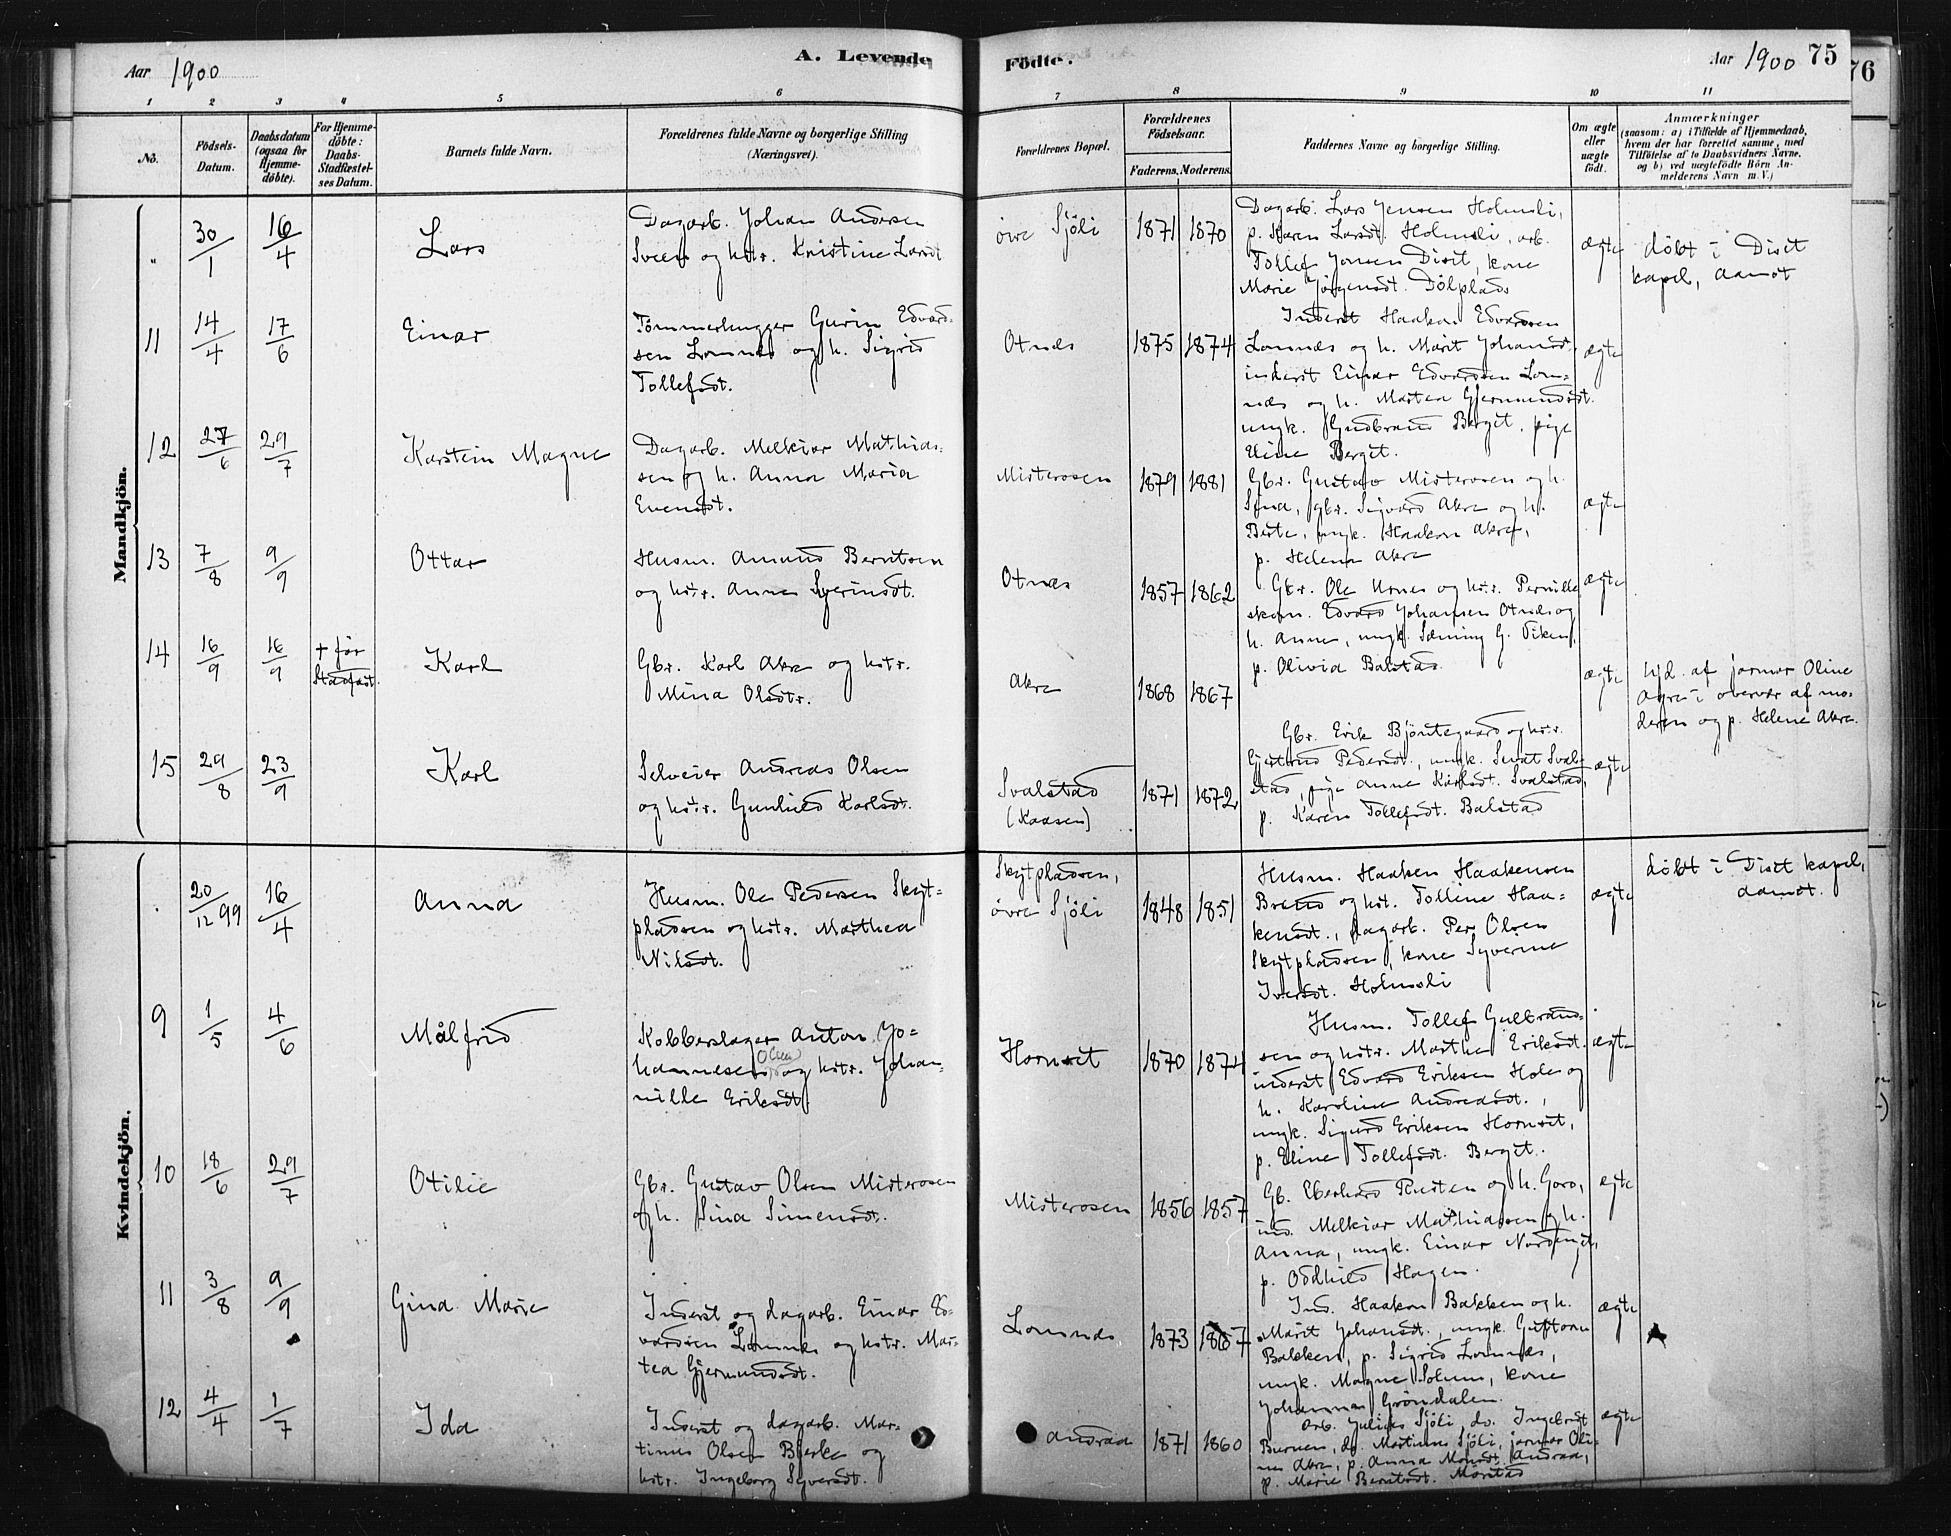 Aar 1900
A. Levende Födte.
Aar 1900 75
76
1 2 3 4 5 6 7 8 9 10 11
No.
Födsels-Datum.
Daabsdatum (ogsaa for Hjemmedöbte).
For Hjemmedöbte: Daabs-Stadfæstelses Datum.
Barnets fulde Navn.
Forældrenes fulde Navne og borgerlige Stilling (Næringsvei).
Forældrenes Bopæl.
Forældrenes Födselsaar.
Faderens. Moderens.
Faddernes Navne og borgerlige Stilling.
Om ægte eller uægte födt.
Anmærkninger
(saasom: a) i Tilfælde af Hjemmedaab,
hvem der har forrettet samme, med
Tilföielse af to Daabsvidners Navne,
og b) ved uægtefödte Börn An-
melderens Navn m. V.)
Mandkjön.
" 30/1 16/4 Lars
Dagarb. Johan Andersen
Sveen og hstr. Kristine Larsdt
övre Sjöli 1871 1870
Dagarb. Lars Jensen Holmsli,
p. Karen Larsdt. Holmsli, arb.
Tollef Jonsen Diset, kone
Marie Jörgensdt. Dölplads
ægte
döbt i Diset
kapel, Aamot
11 14/4 17/6 Einar
Tömmerhugger Edvard-
sen Lomnes og h. Sigrid
Tollefsdt.
Otnes 1875 1874
Inderst Haakon Edvardsen
Lomnes og h. Marit Johansdt.
inderst Einar Edvardsen Lom-
nes og h. Martea Gjermundsdt.
ungk. Gudbrand Berget, pige
Eline Berget.
ægte
12 27/6 29/7 Karstein Magne
Dagarb. Melkior Mathias-
sen og h. Anna Maria
Evensdt.
Misterosen 1879 1881
Gbr. Gustav Misterosen og h.
Sina, gbr. Sigvard Akre og h.
Berte, ungk. Haakon Akre,
p. Helena Akre
ægte
13 7/8 9/9 Ottar
Husm. Amund Berntsen
og hstr. Anne Syverinsdt.
Otnes 1857 1862
Gbr. Ole Urnes og hstr. Pernille
skom. Edvard Johansen Otnes og
h. Anne, ungk. Sæming G. Viken,
p. Olivia Balstad
ægte
14 16/9 16/9 + før Stadfæst. Karl
Gbr. Karl Akre og hstr.
Mina Olsdtr.
Akre 1868 1867
ægte
hjd. af jormor Oline
Akre i overvær af mo-
deren og p. Helene Akre.
15 29/8 23/9 Karl
Selveier Andreas Olsen
og hstr. Gunhild Karlsdt.
Svalstad
(Kaasen) 1871 1872
Gbr. Erik Bjöntegaard og hstr.
Gjertrud Pedersdt., ungk. Svalstad, pige Anne Karlsdt. Svalstad,
p. Karen Tollefsdt. Balstad
ægte
Kvindekjön.
" 20/12 99 16/4 Anna
Husm. Ole Pedersen Skyt-
pladsen og hstr. Marthea
Nilsdt.
Skytpladsen,
övre Sjöli 1848 1851
Husm. Haaken Haakensen
Brænd og hst. Tolline Haa-
kensdt., dagarb. Per Olsen
Skytpladsen, kone Syverine
Iversdt. Holmsli
ægte
döbt i Diset kapel,
Aamot.
9 1/5 4/6 Målfrid
Kobberslager Anton Jo-
hannesen (Olsen) og hstr. Johan-
nille Eriksdt.
Hornset 1870 1874
Husm. Tollef Gulbrand-
sen og hstr. Marthe Eriksdt.
inderst Edvard Eriksen Hole og
h. Karoline Andreasdt.,
ungk. Sigurd Eriksen Hornset,
p. Eline Tollefsdt. Berget.
ægte
10 18/6 29/7 Otilie
Gbr. Gustav Olsen Misterosen
og h. Sina Simensdt.
Misterosen 1856 1857
Gb. Eberhard Rusten og h. Goro,
ind. Melkior Mathiassen og h.
Anna, ungk. Einar Nordengt,
p. Oddhild Hagen.
ægte
11 3/8 9/9 Gina Marie
Inderst og dagarb. Einar Ed-
vardsen Lomnes og hstr. Mar-
tea Gjermundsdt.
Lomnes 1873 1867
Ind. Haakon Bakken og h.
Marit Johansdt., ungk. Gustav
Bakken, p. Sigrid Lomnes,
ungk. Magne Solum, kone
Johanna Gröndalen.
ægte
12 4/4 1/7 Ida
Inderst og dagarb. Mar-
tinus Olsen Bjerke og
hstr. Ingeborg Syversdt.
Andraa 1871 1860
Arb. Julius Sjöli, do. Ingebrigt
Burøen, do. Martinus Sjöli, jormor Oli-
ne Akre, p. Anna Andraa,
p. Marie Berntsdt. Morstad
ægte